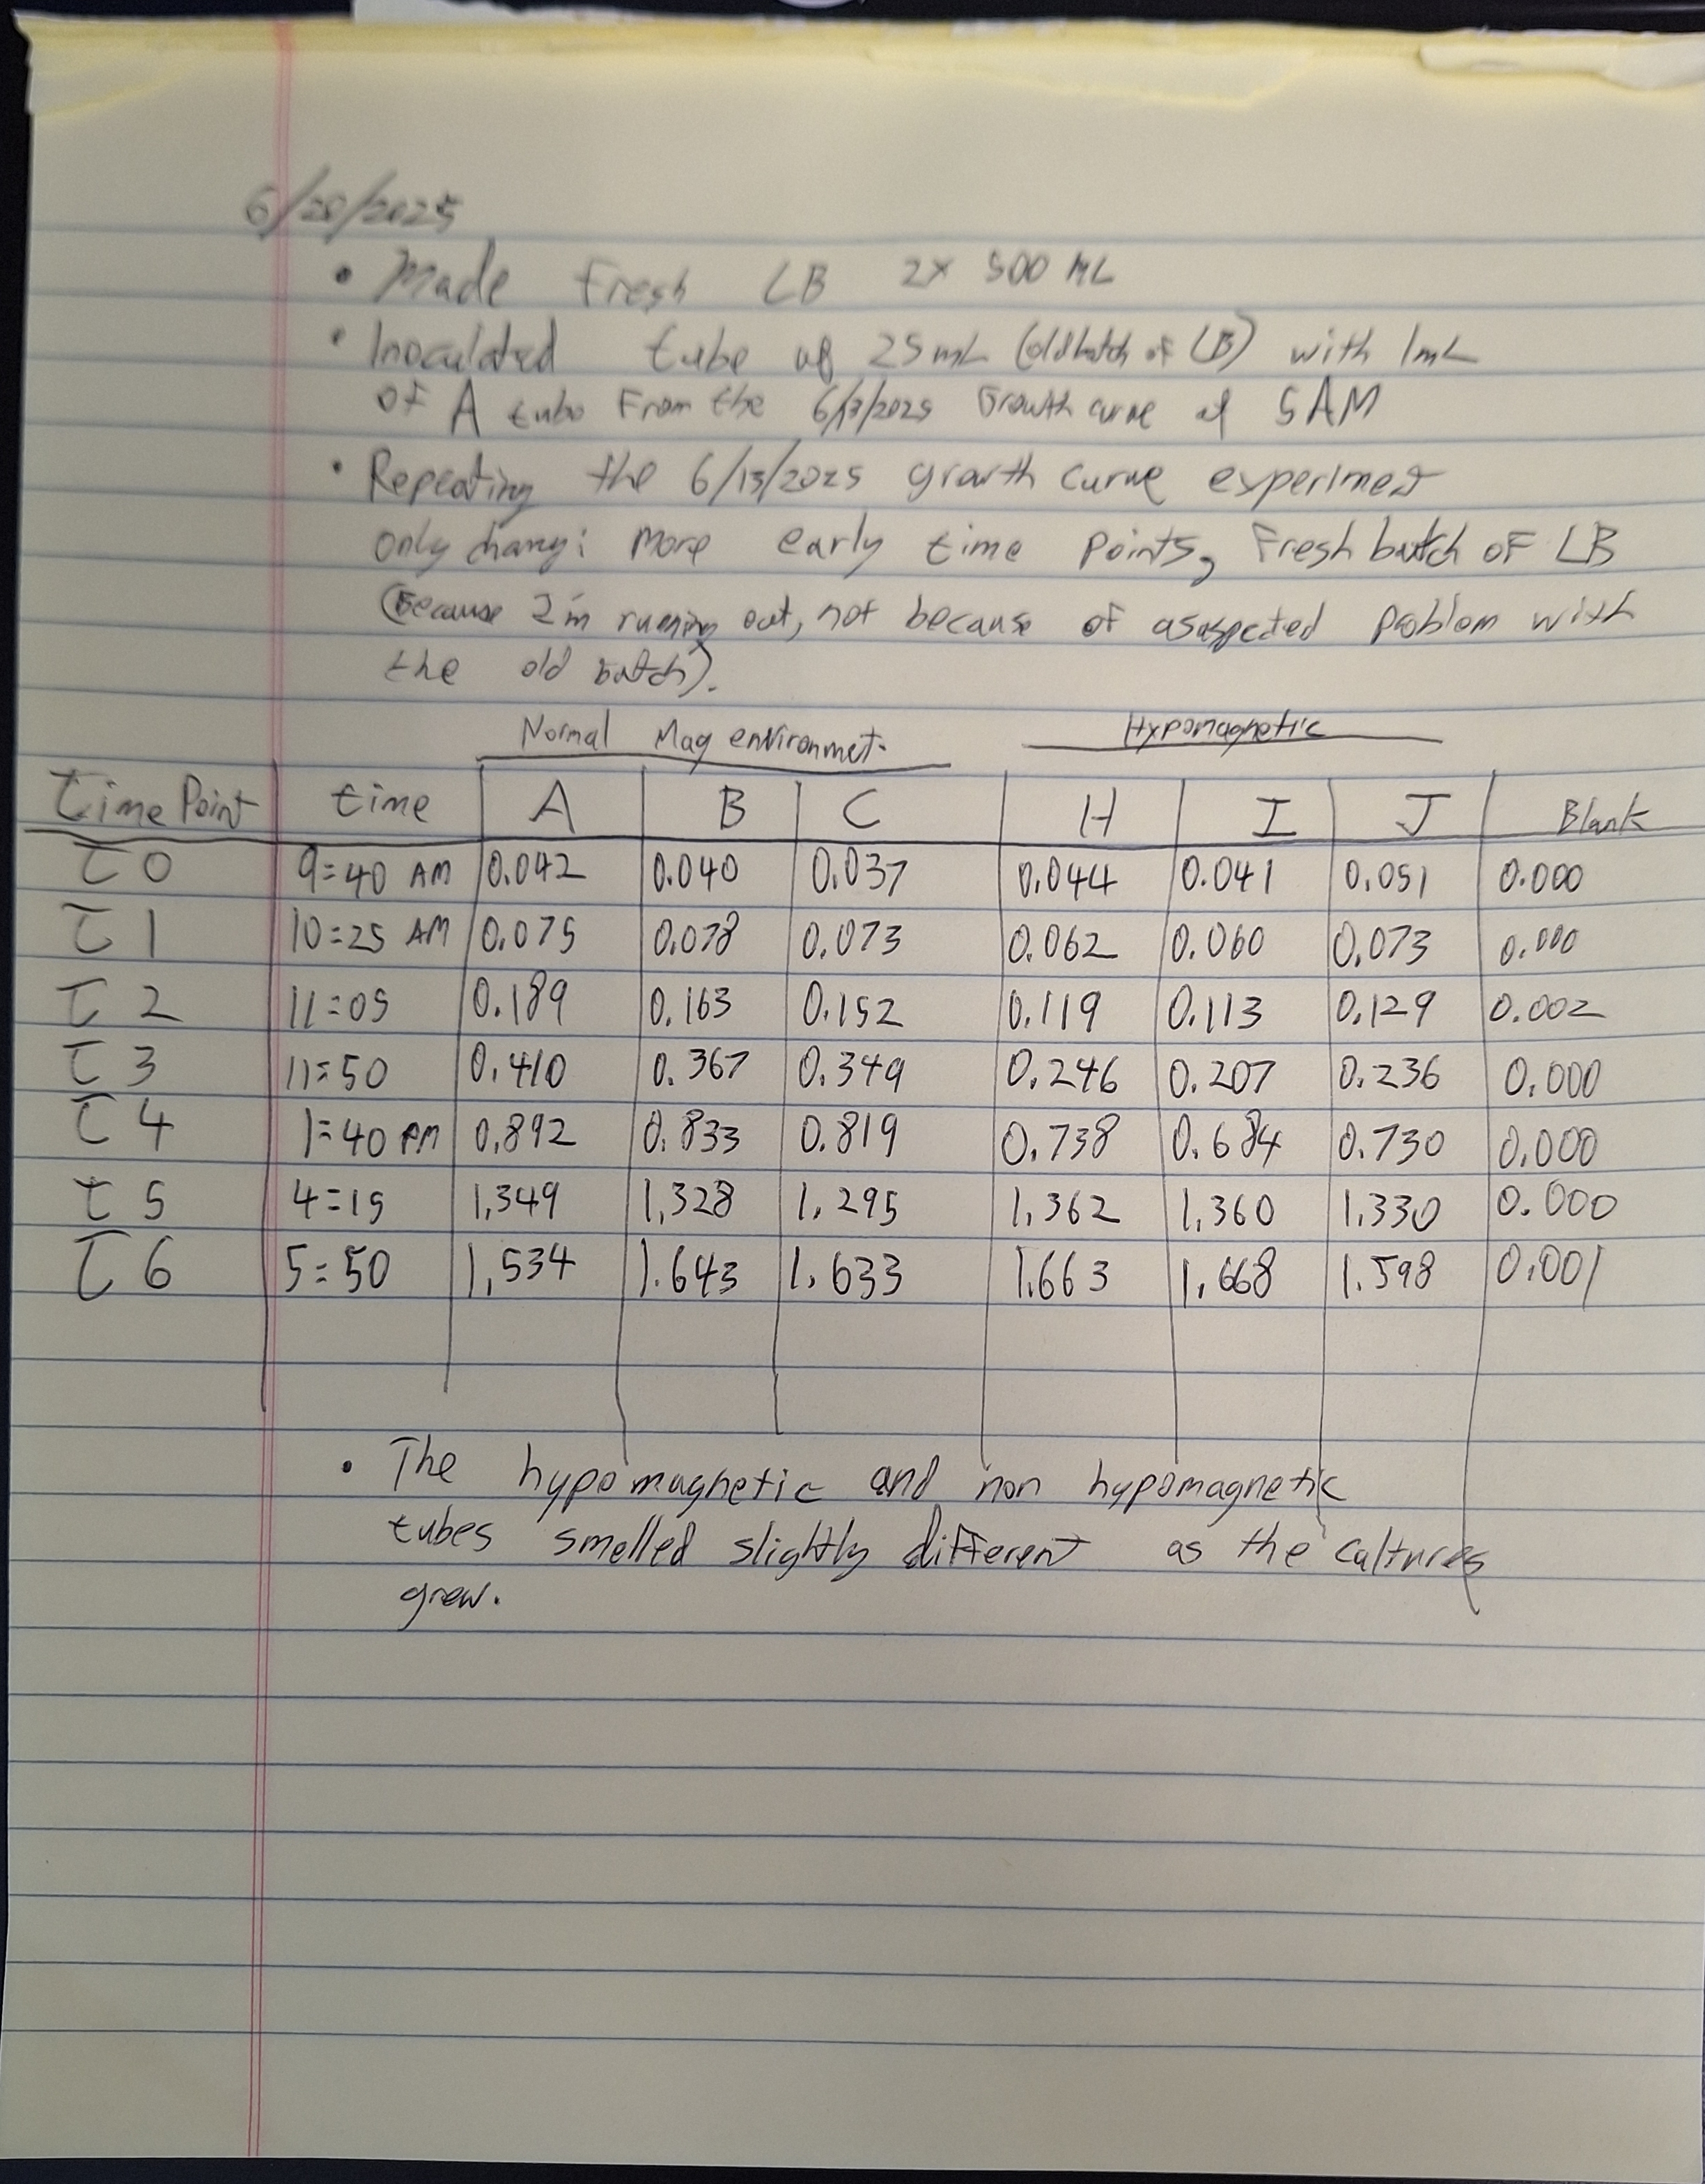 6/20/2025
• Made Fresh LB 2x 500 mL
• Inoculated tube of 25mL (old batch of LB) with 1mL
of A tube From the 6/13/2025 Growth curve at 5AM
• Repeating the 6/13/2025 growth curve experiment
only chang: more early time points, Fresh batch of LB
(Because I'm runing out, not because of asuspected problem with
the old batch).
Normal Mag environmet. Hypomagnetic
time Point time A B C H I J Blank
T0 9:40 AM 0.042 0.040 0.037 0.044 0.041 0.051 0.000
T1 10:25 AM 0.075 0.078 0.073 0.062 0.060 0.073 0.000
T2 11:05 0.189 0.163 0.152 0.119 0.113 0.129 0.002
T3 11:50 0.410 0.367 0.349 0.246 0.207 0.236 0.000
T4 1:40 PM 0.892 0.833 0.819 0.738 0.684 0.730 0.000
T5 4:15 1.349 1.328 1.295 1.362 1.360 1.330 0.000
T6 5:50 1.534 1.643 1.633 1.663 1.668 1.598 0.001
• The hypomagnetic and non hypomagnetic
tubes smelled slightly different as the cultures
grew.